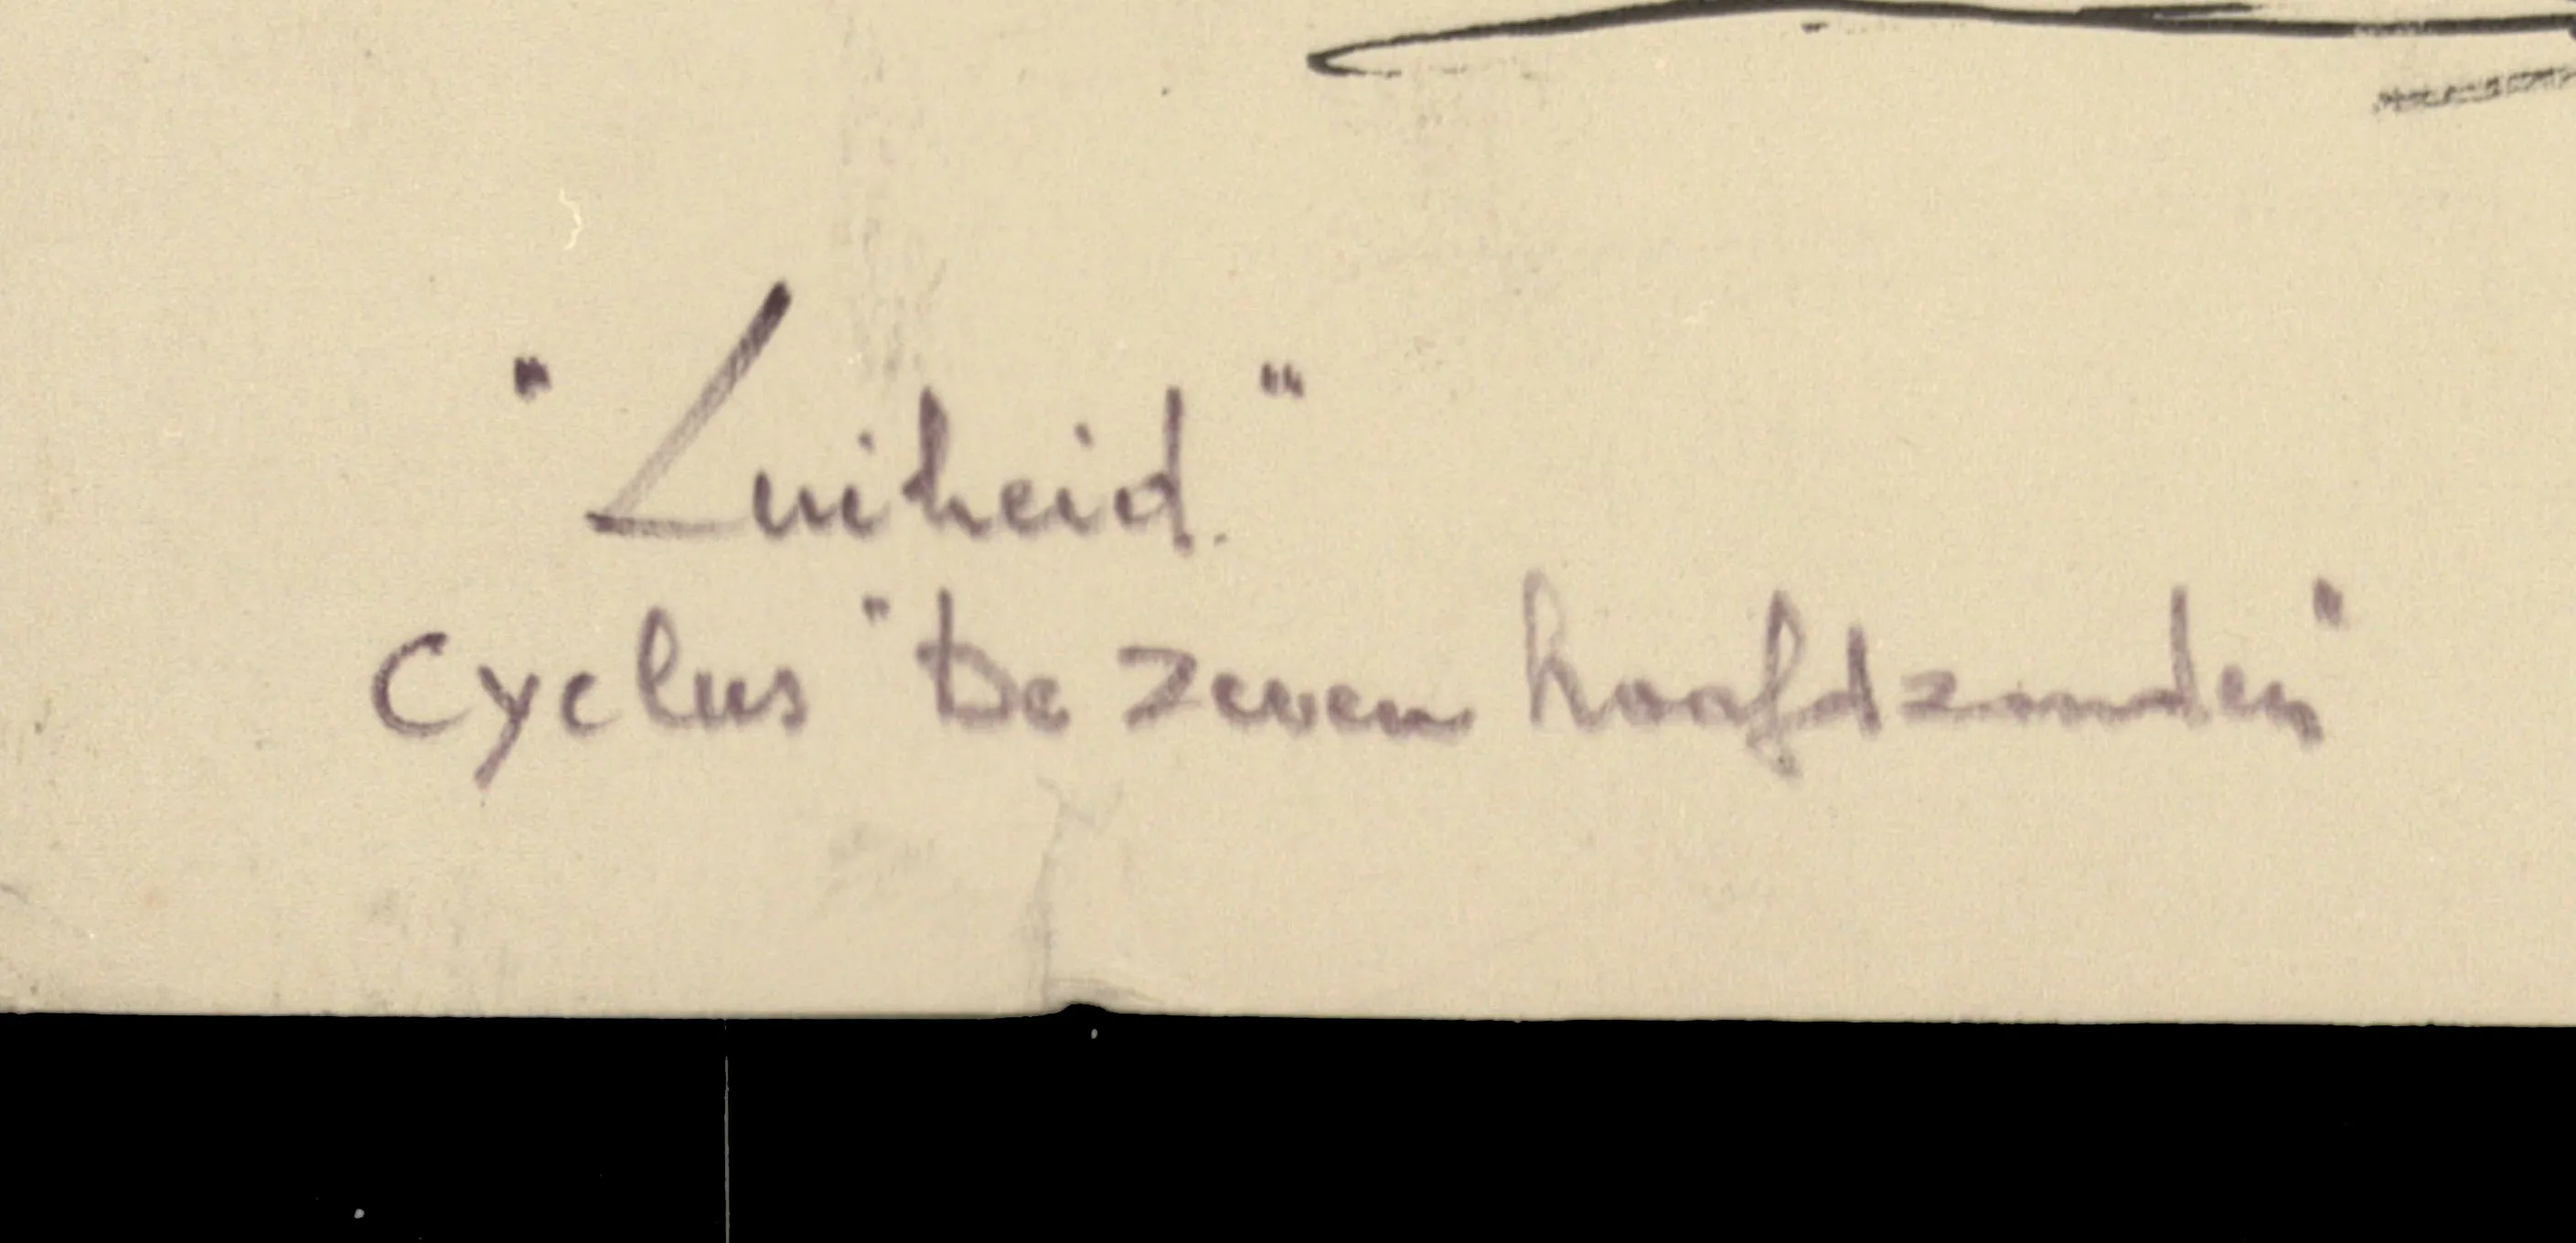 "Luiheid."
Cyclus "De zeven hoofdzonden"